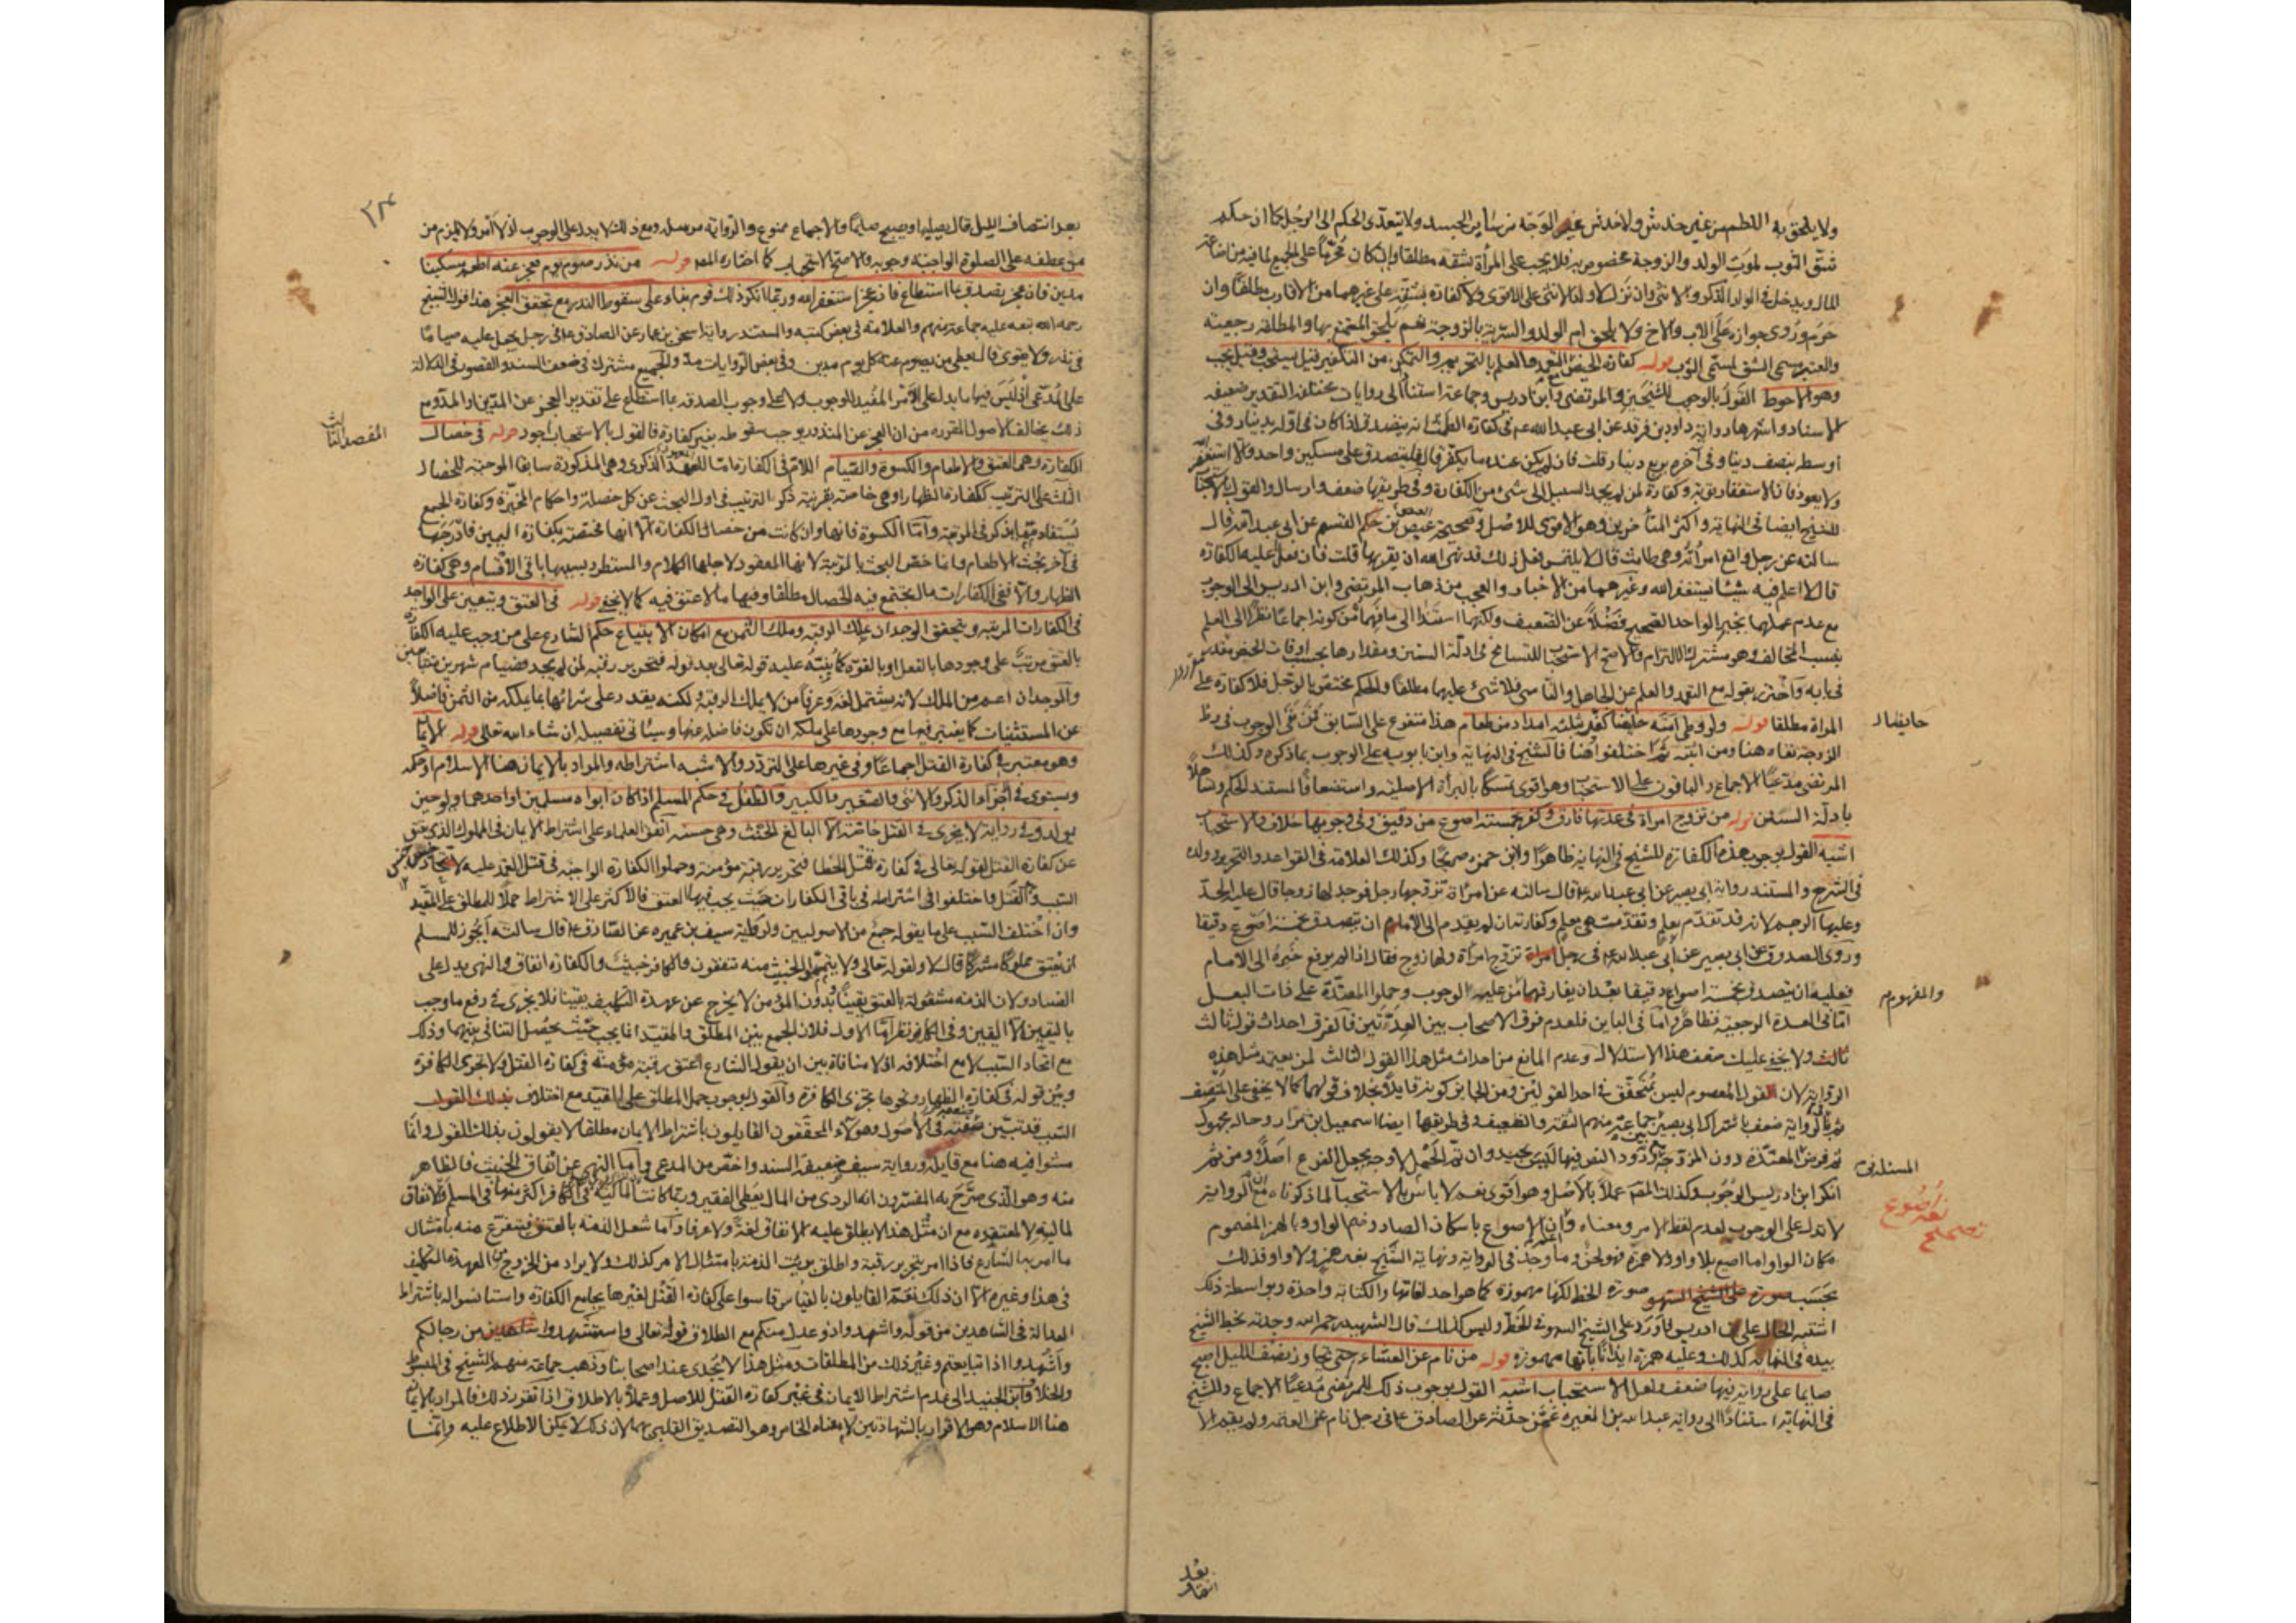 ولا يلحق به اللطم من غير خدش ولا خدش غير الوجه من سائر الجسد ولا يتعدى الحكم الى الرجل كما ان حكم
شق الثوب لموت الولد والزوجة مخصوص به فلا يجب على المرأة بشقه مطلقا وان كان محرما على الجميع لما فيه من اضاعة
المال ويدخل في الولد الذكر والانثى وان نزل ولا كفارة بشقه على غيرهما من الاقارب مطلقا وان
حرم وروى جوازه على الاب والاخ ولا يلحق ام الولد والسرية بالزوجة نعم يلحق المتمتع بها والمطلقة رجعية
والمعتبر مسمى الشق لمسمى الثوب قوله كفارة الحيض مع التعمد والعلم بالتحريم والتمكن من التكفير قيل يستحب وقيل يجب
وهو الاحوط القول بالوجوب للشيخين والمرتضى وابن ادريس وجماعة استنادا الى روايات مختلفة التقدير ضعيفة
الاسناد واشهرها رواية داود بن فرقد عن ابى عبد الله عم في كفارة الطمث انه يتصدق اذا كان في اوله بدينار وفي
اوسطه بنصف دينار وفي آخره بربع دينار قلت فان لم يكن عنده ما يكفر قال فليتصدق على مسكين واحد والا استغفر
ولا يعود فان الاستغفار توبة وكفارة لمن لم يجد السبيل الى شئ من الكفارة وفي طريقها ضعف وارسال والقول بالاستحباب
للشيخ ايضا في النهاية واكثر المتأخرين وهو الاقوى للاصل وصحيحة عيص بن القسم عن ابى عبد الله قال
سالته عن رجل واقع امرأته وهي طامث قال لا يلتمس فعل ذلك قد نهى الله ان يقربها قلت فان فعل اعليه الكفارة
قال لا اعلم فيه شيئا يستغفر الله وغيرهما من الاخبار والعجب من ذهاب المرتضى وابن ادريس الى الوجوب
مع عدم عملهما بخبر الواحد الصحيح فضلا عن الضعيف ولكنهما استندا الى ما فهماه من كونه اجماعا نظرا الى العلم
بنسب المخالف وهو مشترك الالتزام والاصح الاستحباب للتسامح في ادلة السنن ومقدارها بحسب اوقات الحيض مقدر
في بابه واحترز بقوله مع التعمد والعلم عن الجاهل والناسى فلا شئ عليهما مطلقا والحكم مختص بالرجل فلا كفارة على
المراة مطلقا قوله ولو وطئ امته حايضا كفر بثلثه امداد من طعام هذا متفرع على السابق فمن نفى الوجوب في وطئ
الزوجة نفاه هنا ومن اثبته ثم اختلفوا هنا فالشيخ في النهاية وابن بابويه على الوجوب بما ذكره وكذلك
المرتضى مدعيا الاجماع والباقون على الاستحباب وهو اقوى تمسكا بالبرأة الاصلية واستضعافا لمستند الحكم وتساهلا
بادلة السنن قوله من تزوج امراة في عدتها فارق وكفر بخمسة اصوع من دقيق وفي وجوبها خلاف والاستحباب
اشبه القول بوجوب هذه الكفارة للشيخ في النهاية ظاهرا وابن حمزه صريحا وكذلك العلامة في القواعد والتحرير وولده
في الشرح والمستند رواية ابى بصير عن ابى عبد الله عم قال سالته عن امراة تزوجها رجل فوجد لها زوجا قال عليه الحد
وعليها الرجم لانه قد تقدم بعلم وتقدمت هي بعلم وكفارته ان لم يقدم الى الامام ان يتصدق بخمسة اصوع دقيقا
وروى الصدوق عن ابى بصير عن ابى عبد الله عم في رجل تزوج امرأة ولها زوج فقال اذا لم يرفع خبره الى الامام
فعليه ان يتصدق بخمسة اصوع دقيقا بعد ان يفارقها الوجوب وحملوا المعتدة على ذات البعل
اما في العدة الرجعية فظاهر واما في الباين فلعدم فرق الاصحاب بين العدتين فالفرق احداث قول ثالث
ولا يخفى عليك ضعف هذا الاستدلال وعدم المانع من احداث مثل هذا القول الثالث لمن يعتمد مثل هذه
الرواية لان القول المعصوم ليس بمتحقق في احد القولين ومن الجايز كونه قايلا بخلاف قولهما كما لا يخفى على المنصف
ثم بالرواية ضعف باشتراك ابى بصير بين جماعة منهم الثقة والضعيف وفي طريقها ايضا اسمعيل بن مرار وحاله مجهول
ثم فرض المعتدة دون المزوجة ورود النص فيها ليس بجيد وان تم الحمل لا وجه لجعل الفرع اصلا ومن ثم
انكر ابن ادريس الوجوب وكذلك المصنف عملا بالاصل وهو اقوى نعم لا باس بالاستحباب لما ذكرناه مع ان الرواية
لا تدل على الوجوب لعدم لفظ الامر ومعناه واعلم ان الاصوع باسكان الصاد وضم الواو وبالهمز المضموم
مكان الواو واما اصع بلا واو ولا همزة فهو لحن وما وجد في الرواية ونهاية الشيخ بغير همز ولا واو فذلك
بحسب صورة الخط لكنها مهموزة كما هو احد لغاتها والكتابة واحدة وبواسطة ذلك
اشتبه الحال على ابن ادريس فاورد على الشيخ السهو في الخط وليس كذلك قال الشهيد رحمه الله وجدته بخط الشيخ
بيده في النهاية كذلك وعليه همزة ايذانا بانها مهموزة قوله من نام عن العشاء حتى تجاوز نصف الليل اصبح
صايما على رواية فيها ضعف ولعل الاستحباب اشبه القول بوجوب ذلك للمرتضى مدعيا الاجماع وللشيخ
في النهاية استنادا الى رواية عبد الله بن المغيرة عمن حدثه عن الصادق ع في رجل نام عن العتمة ولم يقم الا
حايضا
والمفهوم
المستند في
اصوع
بعد
انتصاف
بعد انتصاف الليل قال يصليها ويصبح صايما والاجماع ممنوع والرواية مرسله ومع ذلك لا يدل على الوجوب اذ لا امر ولا يلزم من
من عطفه على الصلوة الواجبة وجوبه والاصح الاستحباب كما اختاره المصـ قوله من نذر صوم يوم فعجز عنه اطعم مسكينا
مدين فان عجز تصدق بما استطاع فان عجز استغفر الله وربما انكر ذلك قوم بناء على سقوط النذر مع تحقق العجز هذا قول الشيخ
رحمه الله تبعه عليه جماعة منهم والعلامة في بعض كتبه والمستند رواية اسحق بن عمار عن الصادق ع في رجل يجعل عليه صياما
في نذر ولا يقوى قال يعطى من يصوم عنه كل يوم مدين وفي بعض الروايات مد والجميع مشترك في ضعف السند والقصور في الدلالة
على المدعى اذ ليس فيها ما يدل على الامر المفيد للوجوب ولا على وجوب الصدقة بما استطاع على تقدير العجز عن المدين او المد ومع
ذلك يخالف الاصول المقررة من ان العجز عن المنذور يوجب سقوطه بغير كفارة فالقول بالاستحباب اجود قوله في خصال
الكفارة وهى العتق والاطعام والكسوة والصيام اللام في الكفارة اما للعهد الذكرى وهي المذكورة سابقا الموجبة للخصال
الثلث على الترتيب ككفارة الظهار او هي خاصة بقرينة ذكر الترتيب في اول البحث عن كل خصلة واحكام المخيرة وكفارة الجمع
يستفاد مما يذكر في المرتبة واما الكسوة فانها وان كانت من خصال الكفارة الا انها مختصة بكفارة اليمين فادرجها
في آخر بحث الاطعام وانما خص البحث بالمرتبة لانها المعقود لاجلها الكلام والمستطرد بسببها باقى الاقسام وهي كفارة
الظهار والا ففى الكفارات ما لا يجتمع فيه الخصال مطلقا وفيها ما لا عتق فيه كما لا يخفى قوله في العتق ويتعين على الواجد
في الكفارات المرتبة ويتحقق الوجدان بملك الرقبة وملك الثمن مع امكان الابتياع حكم الشارع على من وجب عليه الكفارة
بالعتق مرتب على وجودها بالفعل او بالقوة كما ينبه عليه قوله تعالى بعد قوله فتحرير رقبة فمن لم يجد فصيام شهرين متتابعين
والوجدان اعم من الملك لانه يشتمل لغة وعرفا من لا يملك الرقبة ولكنه يقدر على شرائها بما يملكه من الثمن فاضلا
عن المستثنيات كما يعتبر فيها مع وجودها على ملكه ان تكون فاضلة عنها وسيأتى تفصيله ان شاء الله تعالى قوله الايمان
وهو معتبر في كفارة القتل اجماعا وفي غيرها على التردد والاشبه اشتراطه والمراد بالايمان هنا الاسلام او حكمه
ويستوى في الاجزاء الذكر والانثى والصغير والكبير والطفل في حكم المسلم اذا كان ابواه مسلمين او احدهما ولو حين
يولد وفي رواية لا يجزى في القتل خاصة الا البالغ الحنث وهي حسنه اتفق العلماء على اشتراط الايمان في المملوك الذى يعتق
عن كفارة القتل لقوله تعالى في كفارة قتل الخطا فتحرير رقبة مؤمنة وحملوا الكفارة الواجبة في قتل العمد عليه لاتحاد جنس
السبب وهو القتل واختلفوا في اشتراطه في باقى الكفارات حيث يجب فيها العتق فالاكثر على الاشتراط حملا للمطلق على المقيد
وان اختلف السبب على ما يقوله جمع من الاصوليين ولرواية سيف بن عميره عن الصادق ع قال سالته ايجوز للمسلم
ان يعتق مملوكا مشركا قال لا ولقوله تعالى ولا تيمموا الخبيث منه تنفقون والكافر خبيث والكفارة انفاق والنهى يدل على
الفساد ولان الذمة مشغولة بالعتق يقينا وبدون المؤمن لا يخرج عن عهدة التكليف يقينا فلا يجزى في رفع ما وجب
باليقين الا اليقين وفي الكل نظر اما الاول فلان الجمع بين المطلق والمقيد انما يجب حيث يحصل التنافى بينهما وذلك
مع اتحاد السبب لا مع اختلافه اذ لا منافاة بين ان يقول الشارع اعتق رقبة مؤمنة في كفارة القتل ولا تجزى الكافرة
وبين قوله في كفارة الظهار ونحوها تجزى الكافرة والقول بوجوب حمل المطلق على المقيد مع اختلاف
السبب قد تبين ضعفه في الاصول وهؤلاء المحققون القايلون باشتراط الايمان مطلقا لا يقولون بذلك القول وانما
مشوا فيه هنا مع قايله ورواية سيف ضعيفة السند واخص من المدعى واما النهى عن انفاق الخبيث فالظاهر
منه وهو الذى صرح به المفسرون انه الردى من المال يعطى الفقير وربما كانت المالية في الكافر اكثر منها في المسلم والانفاق
لماليته لا لمعتقده مع ان مثل هذا لا يطلق عليه الانفاق لغة ولا عرفا واما شغل الذمة بالعتق فيتفرغ منه بامتثال
ما امر به الشارع فاذا امر بتحرير رقبة واطلق برئت الذمة بامتثال الامر كذلك ولا يراد من الخروج من العهدة التكليف
في هذا وغيره الا ان ذلك نعم القايلون بالقياس قاسوا على كفارة القتل لغيرها بجامع الكفارة واستانسوا له باشتراط
العدالة في الشاهدين من قوله واشهدوا ذوى عدل منكم مع الطلاق قوله تعالى واستشهدوا شاهدين من رجالكم
واشهدوا اذا تبايعتم وغير ذلك من المطلقات ومثل هذا لا يجدى عند اصحابنا وذهب جماعة منهم الشيخ في المبسوط
والخلاف وابن الجنيد الى عدم اشتراط الايمان في غير كفارة القتل للاصل وعملا بالاطلاق اذا تقرر ذلك فالمراد بالايمان
هنا الاسلام وهو الاقرار بالشهادتين لا معناه الخاص وهو التصديق القلبى بهما لان ذلك لا يمكن الاطلاع عليه وانما
المقصد الثالث